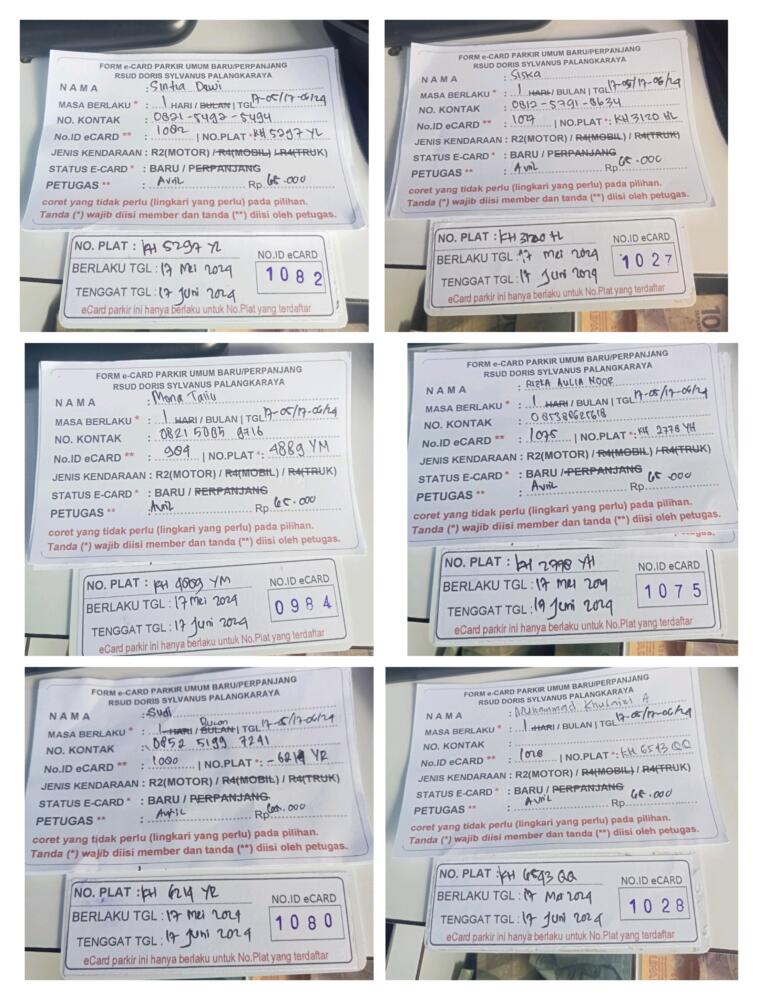 FORM e-CARD PARKIR UMUM BARU/PERPANJANG
RSUD DORIS SYLVANUS PALANGKARAYA
NAMA : Sintia Dewi
MASA BERLAKU * : 1 HARI / BULAN | TGL 17-05/17-06/24
NO. KONTAK : 0821-5492-5494
No.ID eCARD ** : 1082 | NO.PLAT *: KH 5297 YL
JENIS KENDARAAN : R2(MOTOR) / R4(MOBIL) / R4(TRUK)
STATUS E-CARD * : BARU / PERPANJANG
PETUGAS ** : Avril Rp. 65.000
coret yang tidak perlu (lingkari yang perlu) pada pilihan.
Tanda (*) wajib diisi member dan tanda (**) diisi oleh petugas.
NO. PLAT : KH 5297 YL
BERLAKU TGL : 17 Mei 2024
TENGGAT TGL : 17 Juni 2024
NO.ID eCARD
1082
eCard parkir ini hanya berlaku untuk No.Plat yang terdaftar
FORM e-CARD PARKIR UMUM BARU/PERPANJANG
RSUD DORIS SYLVANUS PALANGKARAYA
NAMA : Siska
MASA BERLAKU * : 1 HARI / BULAN | TGL 17-05/17-06/24
NO. KONTAK : 0812-5791-8634
No.ID eCARD ** : 1027 | NO.PLAT *: KH 3120 HL
JENIS KENDARAAN : R2(MOTOR) / R4(MOBIL) / R4(TRUK)
STATUS E-CARD * : BARU / PERPANJANG
PETUGAS ** : Avril Rp. 65.000
coret yang tidak perlu (lingkari yang perlu) pada pilihan.
Tanda (*) wajib diisi member dan tanda (**) diisi oleh petugas.
NO. PLAT : KH 3120 HL
BERLAKU TGL : 17 Mei 2024
TENGGAT TGL : 17 Juni 2024
NO.ID eCARD
1027
eCard parkir ini hanya berlaku untuk No.Plat yang terdaftar
FORM e-CARD PARKIR UMUM BARU/PERPANJANG
RSUD DORIS SYLVANUS PALANGKARAYA
NAMA : Mona
MASA BERLAKU * : 1 HARI / BULAN | TGL 17-05/17-06/24
NO. KONTAK : 0821 5085 8716
No.ID eCARD ** : 984 | NO.PLAT *: 4889 YM
JENIS KENDARAAN : R2(MOTOR) / R4(MOBIL) / R4(TRUK)
STATUS E-CARD * : BARU / PERPANJANG
PETUGAS ** : Avril Rp. 65.000
coret yang tidak perlu (lingkari yang perlu) pada pilihan.
Tanda (*) wajib diisi member dan tanda (**) diisi oleh petugas.
NO. PLAT : KH 4889 YM
BERLAKU TGL : 17 Mei 2024
TENGGAT TGL : 17 Juni 2024
NO.ID eCARD
0984
eCard parkir ini hanya berlaku untuk No.Plat yang terdaftar
FORM e-CARD PARKIR UMUM BARU/PERPANJANG
RSUD DORIS SYLVANUS PALANGKARAYA
NAMA : RIZKA AULIA NOOR
MASA BERLAKU * : 1 HARI / BULAN | TGL 17-05/17-06/24
NO. KONTAK :
No.ID eCARD ** : 1075 | NO.PLAT *: KH 2778 YH
JENIS KENDARAAN : R2(MOTOR) / R4(MOBIL) / R4(TRUK)
STATUS E-CARD * : BARU / PERPANJANG
PETUGAS ** : Avril Rp. 65.000
coret yang tidak perlu (lingkari yang perlu) pada pilihan.
Tanda (*) wajib diisi member dan tanda (**) diisi oleh petugas.
NO. PLAT : KH 2778 YH
BERLAKU TGL : 17 Mei 2024
TENGGAT TGL : 17 Juni 2024
NO.ID eCARD
1075
eCard parkir ini hanya berlaku untuk No.Plat yang terdaftar
FORM e-CARD PARKIR UMUM BARU/PERPANJANG
RSUD DORIS SYLVANUS PALANGKARAYA
NAMA : Sudi
MASA BERLAKU * : 1 HARI / BULAN Bulan | TGL 17-5/17-06/24
NO. KONTAK : 0852 5199 7241
No.ID eCARD ** : 1080 | NO.PLAT *: - 6214 YR
JENIS KENDARAAN : R2(MOTOR) / R4(MOBIL) / R4(TRUK)
STATUS E-CARD * : BARU / PERPANJANG
PETUGAS ** : Avril Rp. 65.000
coret yang tidak perlu (lingkari yang perlu) pada pilihan.
Tanda (*) wajib diisi member dan tanda (**) diisi oleh petugas.
NO. PLAT : KH 6214 YR
BERLAKU TGL : 17 Mei 2024
TENGGAT TGL : 17 Juni 2024
NO.ID eCARD
1080
eCard parkir ini hanya berlaku untuk No.Plat yang terdaftar
FORM e-CARD PARKIR UMUM BARU/PERPANJANG
RSUD DORIS SYLVANUS PALANGKARAYA
NAMA : Muhammad A
MASA BERLAKU * : 1 HARI / BULAN | TGL 17-05/17-06/24
NO. KONTAK :
No.ID eCARD ** : 1028 | NO.PLAT *: KH 6543 QQ
JENIS KENDARAAN : R2(MOTOR) / R4(MOBIL) / R4(TRUK)
STATUS E-CARD * : BARU / PERPANJANG
PETUGAS ** : Avril Rp. 65.000
coret yang tidak perlu (lingkari yang perlu) pada pilihan.
Tanda (*) wajib diisi member dan tanda (**) diisi oleh petugas.
NO. PLAT : KH 6543 QQ
BERLAKU TGL : 17 Mei 2024
TENGGAT TGL : 17 Juni 2024
NO.ID eCARD
1028
eCard parkir ini hanya berlaku untuk No.Plat yang terdaftar